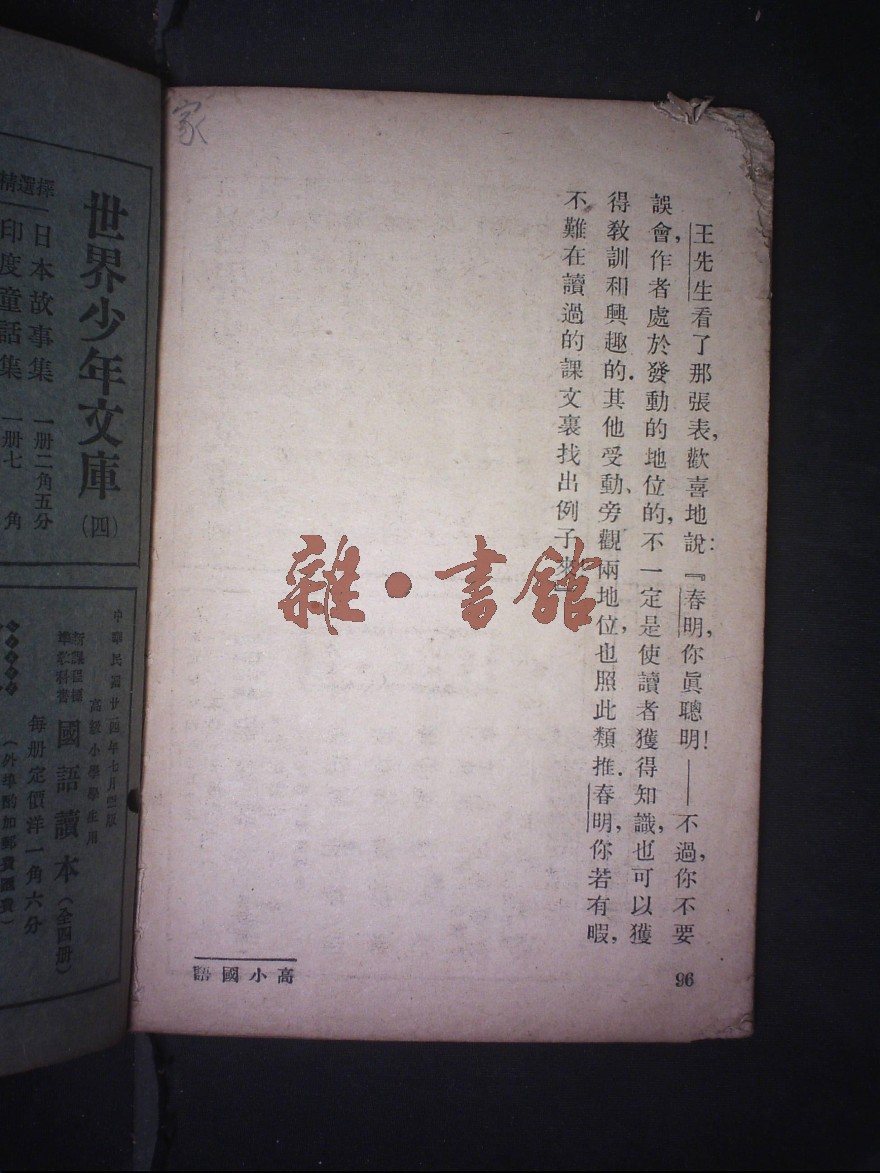 家
王先生看了那張表，歡喜地說：『春明，你眞聰明！——不過，你不要
誤會，作者處於發動的地位的，不一定是使讀者獲得知識，也可以獲
得敎訓和興趣的．其他受動、旁觀兩地位，也照此類推．春明，你若有暇，
不難在讀過的課文裏找出例子來』
96
高小國語
雜・書館
精選擇
世界少年文庫（四）
日本故事集 一册二角五分
印度童話集 一册七角
中華民國廿四年七月
高級小學學生用
新課程標準敎科書
國語讀本（全四册）
每册定價洋一角六分
（外埠酌加郵費匯費）